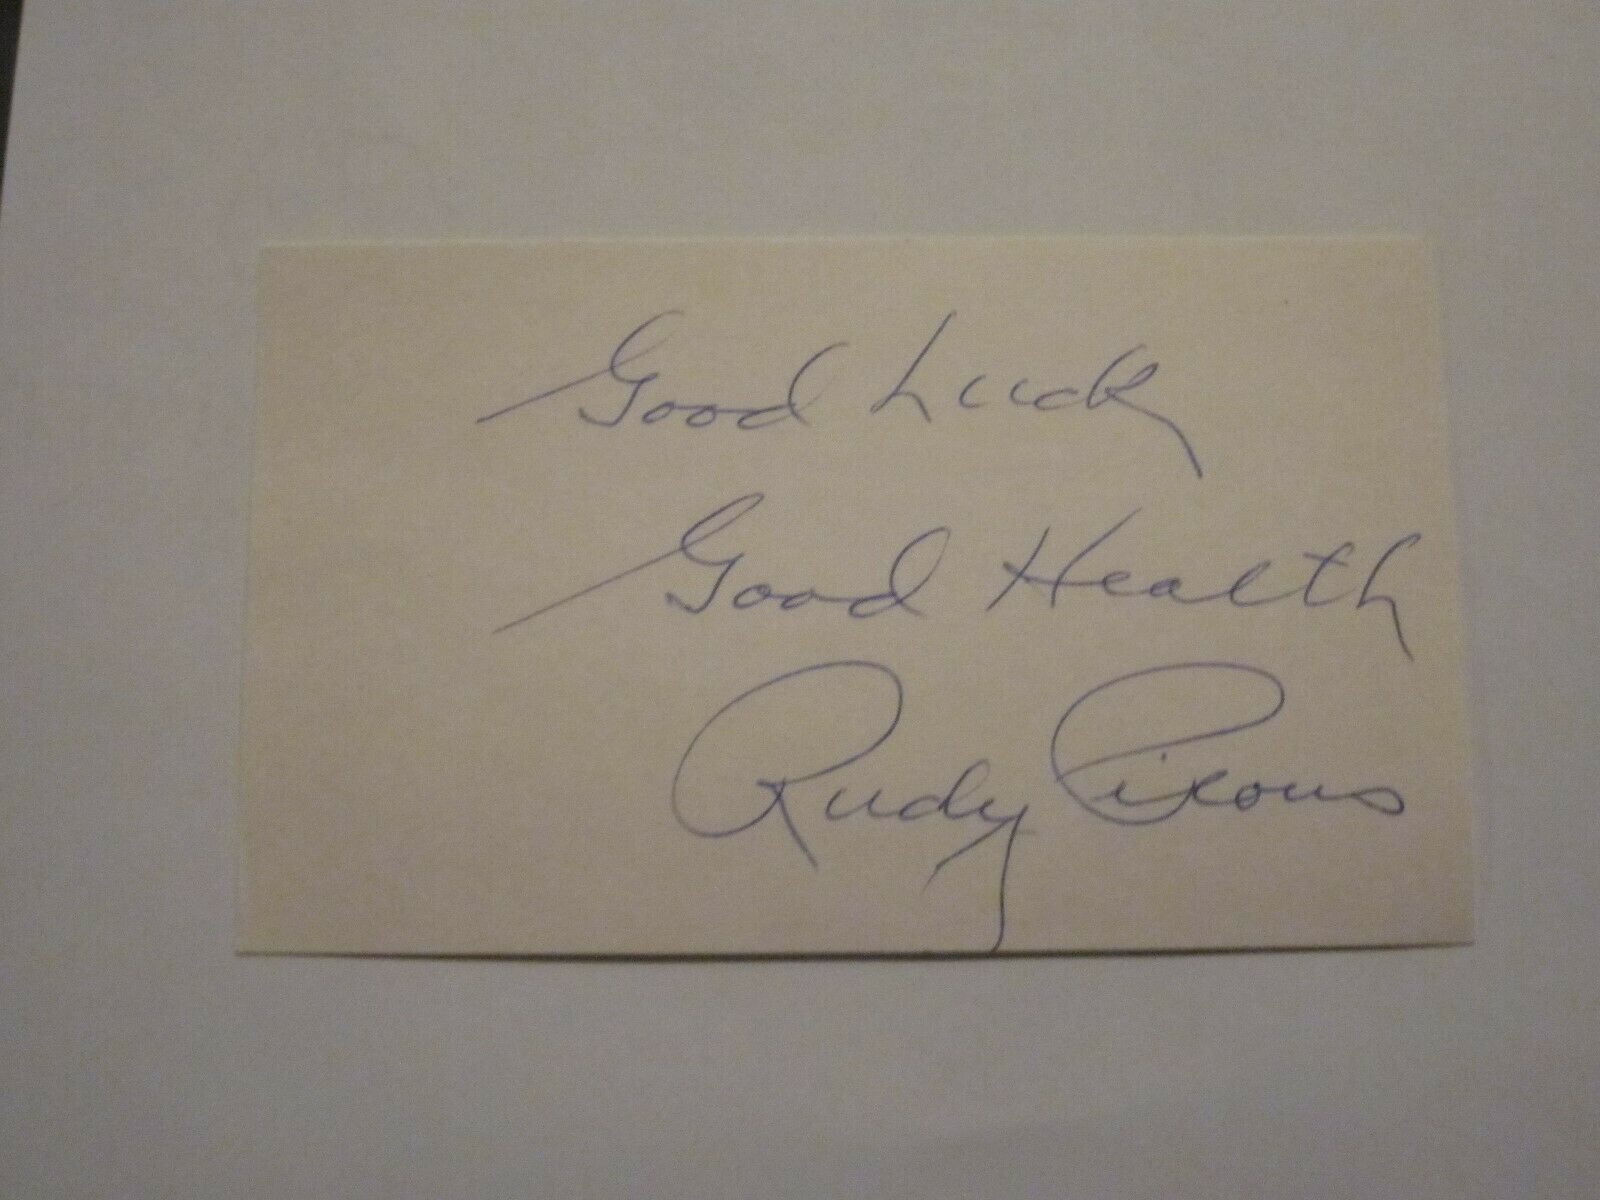 Good Luck
Good Health
Rudy Pixous